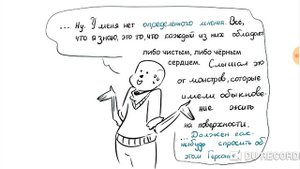 ... Ну. У меня нет определённого мнения. Всё,
что я знаю, это то, что каждый из них обладает
либо чистым, либо чёрным
сердцем. Слышал это
от монстров, которые
имели обыкнове-
ние жить
на поверхности.
... Должен как-
нибудь спросить об
этом Герсона
DU RECORD